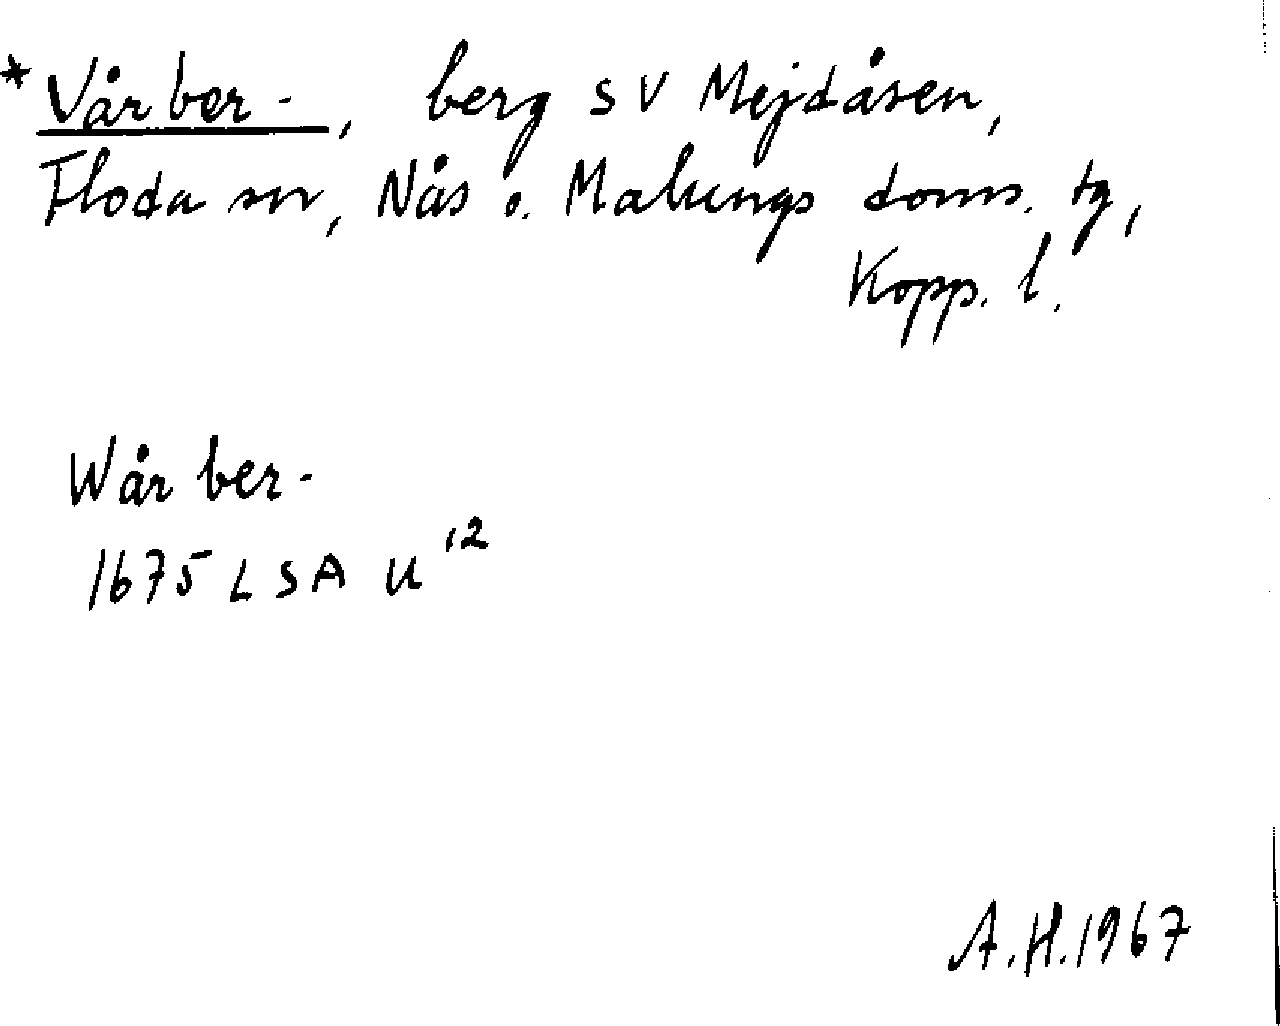 *Vårber-, berg SV Mejdåsen,
Floda sn, Nås o. Malungs doms. tg,
Kopp. l.
Wår ber-
1675 LSA U 12
A.H. 1967